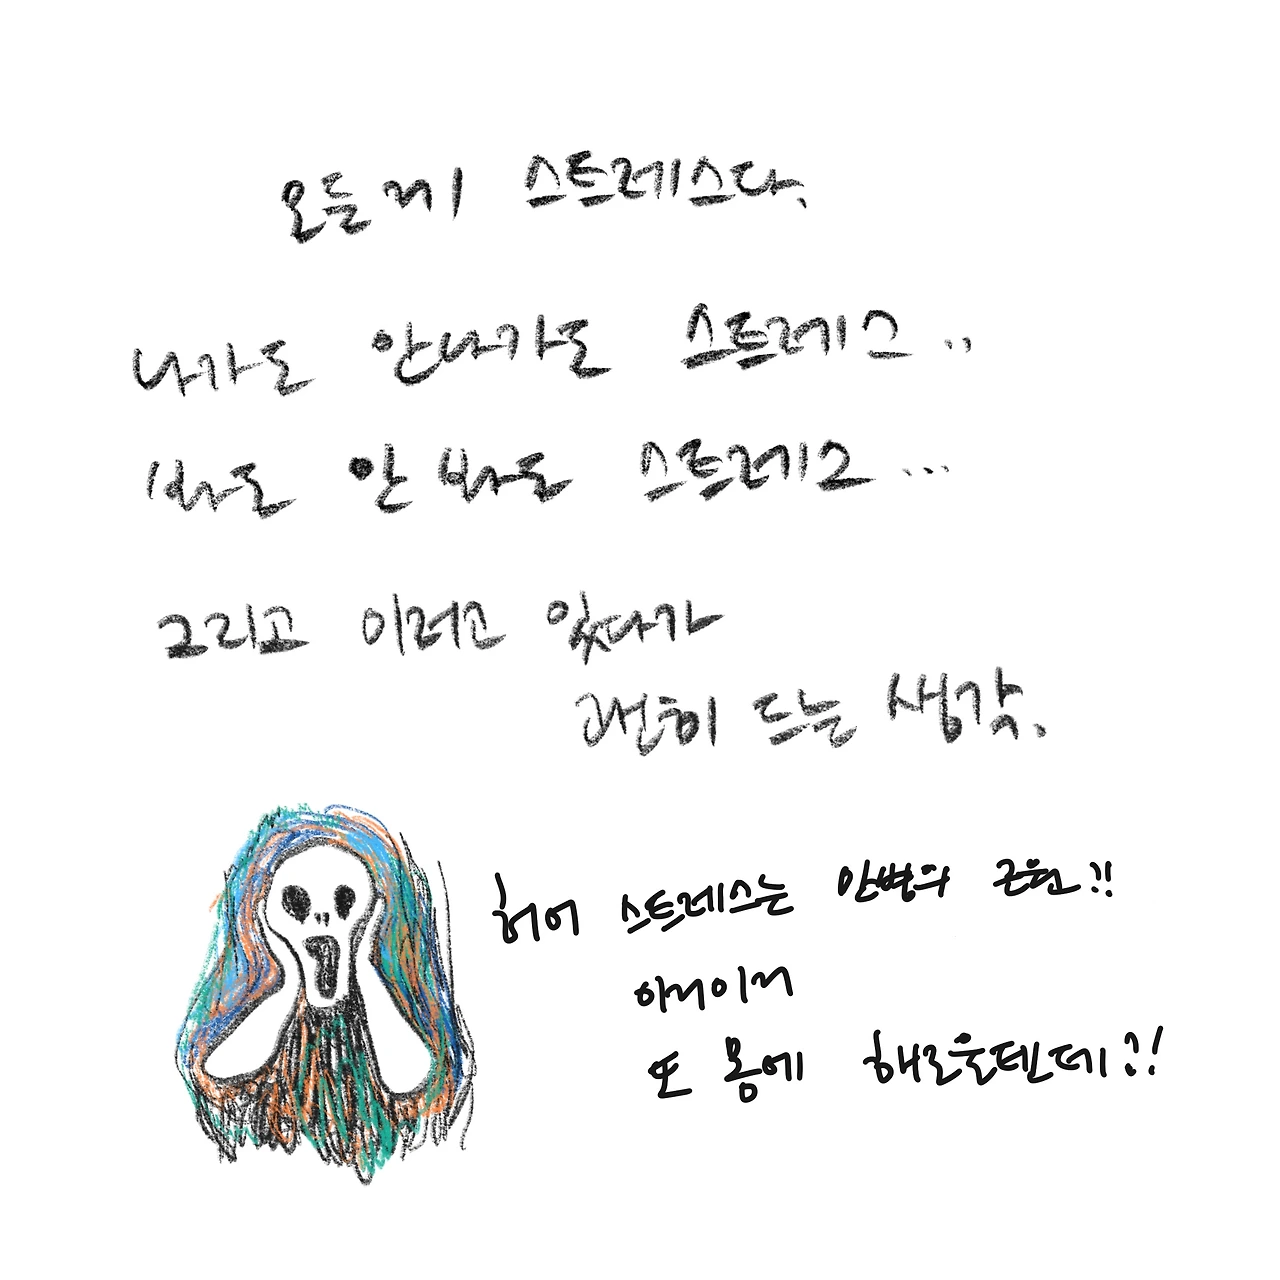 모든게 스트레스다.
나가도 안나가도 스트레스..
봐도 안 봐도 스트레스...
그리고 이러고 있다가
괜히 드는 생각.
허어 스트레스는 만병의 근원?!
이거이거
또 몸에 해로울텐데?!